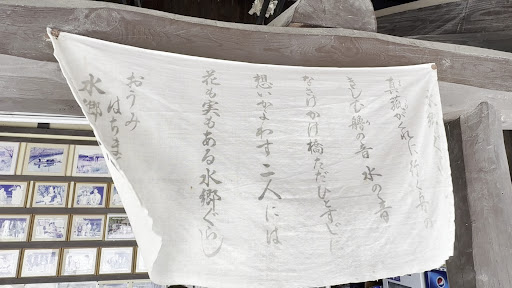 水郷
真菰がくれに行く舟の
きしむ艪の音 水の音
なさけかけ橋ただひとすじに
想いかよわす二人には
花も実もある水郷ぐらし
おうみ はちま
水郷